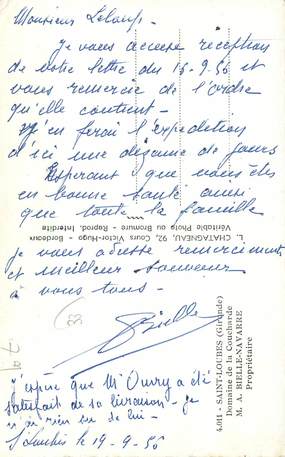 Monsieur Leloup -
Je vous accuse reception
de votre lettre du 15-9-56 et
vous remercie de l'ordre
qu'elle contient -
J'en ferai l'expedition
d'ici une dizaine de jours
Esperant que vous êtes
en bonne santé ainsi
que toute la famille
je vous adresse remerciements
et meilleur souvenir
à vous tous -
Bielle
J'espère que Mr Oury a été
satisfait de sa livraison - je
n'ai rien eu de lui -
St Loubès 19-9-56
L. CHATAGNEAU, 92, Cours Victor-Hugo - Bordeaux
Véritable Photo au Bromure - Reprod. Interdite
4.011 - SAINT-LOUBES (Gironde)
Domaine de la Coucharde
M. A. BIELLE-NAVARRE
Propriétaire
33